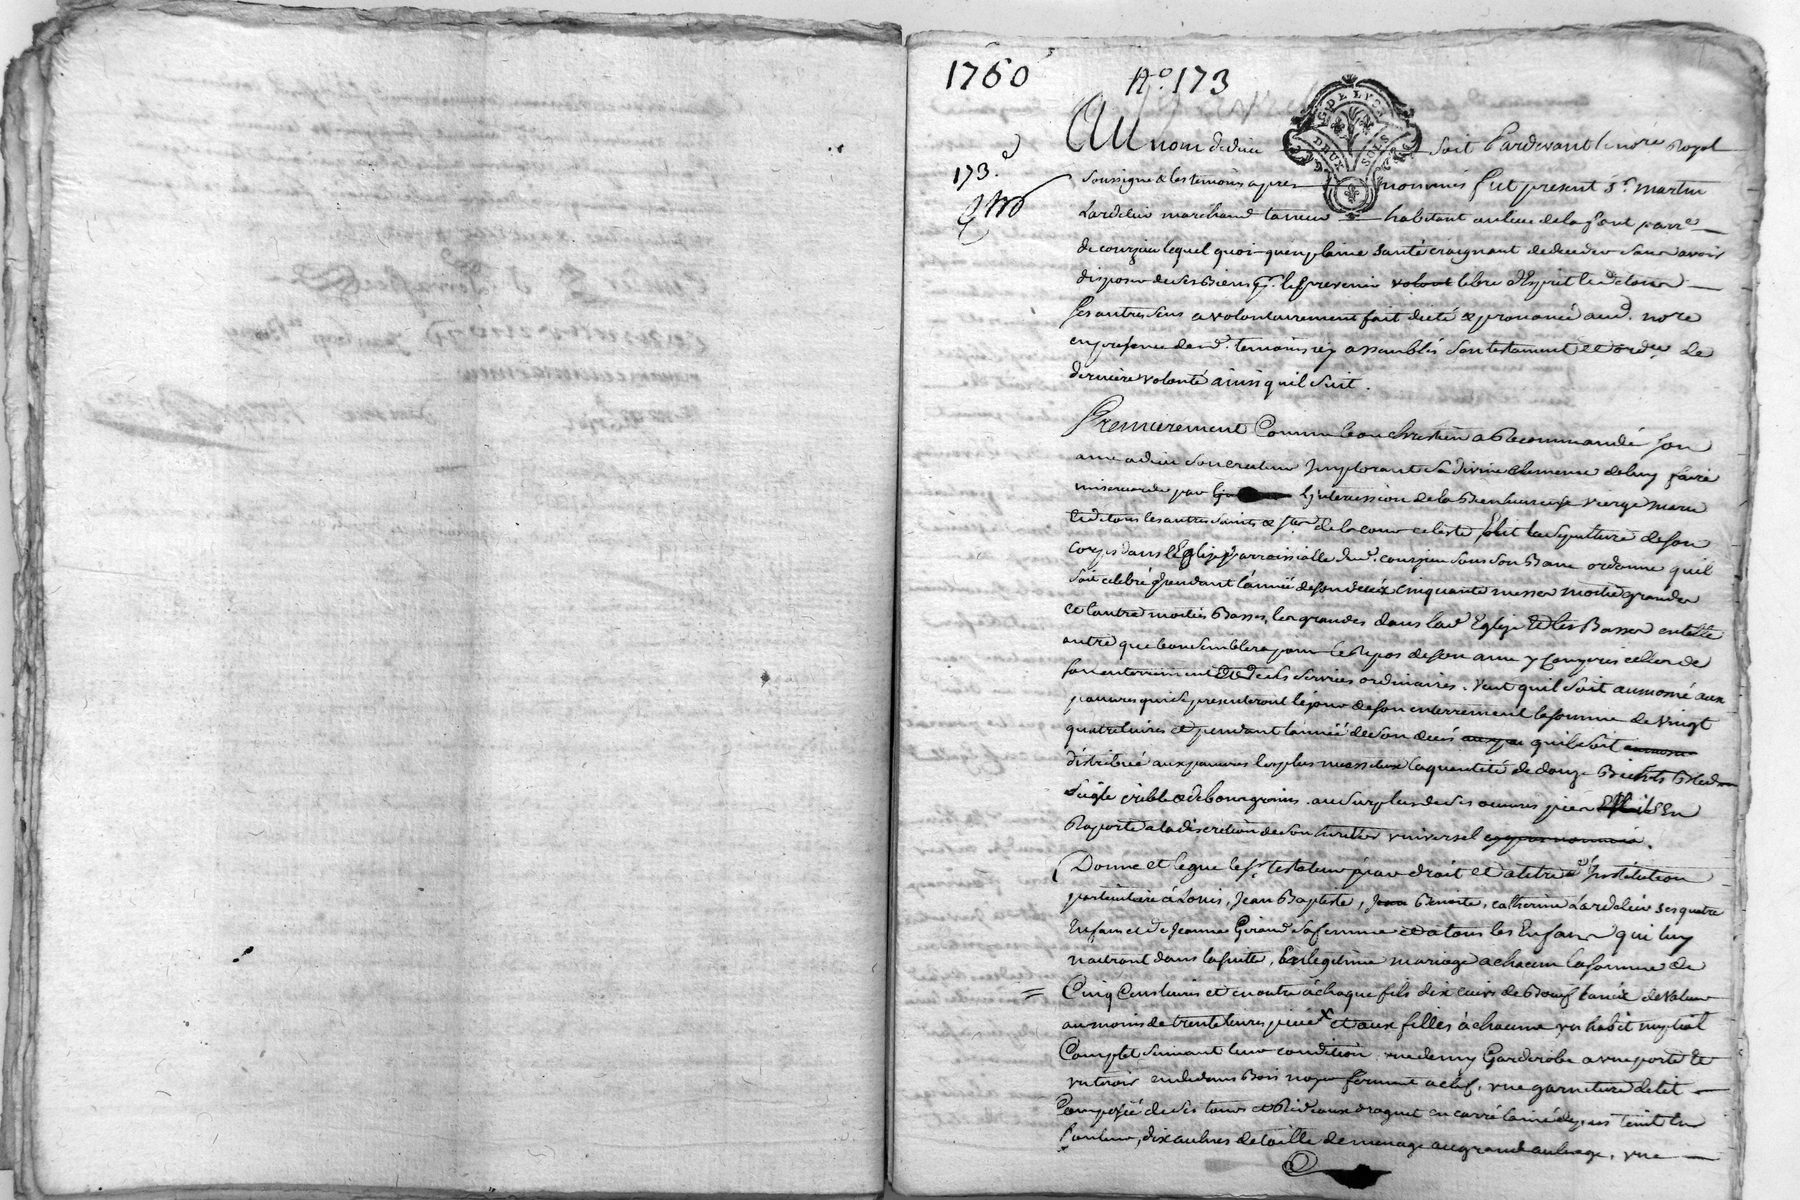 1760
No. 173
173.e
G. DE LYON
DEUX SOLS
Au nom de dieu soit Pardevant le nore Royal
soussigné & les temoins apres nommés fut present sr. martin
Lardelier marchand taneur habitant au lieu de la font parre
de courzieu lequel quoi-quen plaine santé craignant de deceder sans avoir
disposer de ses Biens pr. le prevenir volont libre d'Esprit et de tous
ses autres sens a volontairement fait dicté & prononcé aud. nore
en presence desd. temoins icy assemblés son testament et ordre de
derniere volonté ainsi quil suit.
Premierement Comme bon chretien a Recommandé son
ame a dieu son createur Implorant sa divine clemence de luy faire
misericorde par L'intercession de la Bienheureuse vierge marie
et de tous les autres saints & stes de la cour celeste, Elit la sepulture de son
corps dans l'Eglise parroissialle dud. courzieu sous son Banc ordonne quil
soit celebré pendant l'année de son decéz cinquante messes moitié grandes
et l'autre moitié Basses, les grandes dans lad Eglise et les Basses en telle
autre que bon semblera pour le Repos de son ame y compris celles de
son enterrement et de ses services ordinaires. veut quil soit aumoné aux
pauvres qui se presenteront le jour de son enterrement la somme de vingt
quatre livres et pendant l'année de son decés quil soit
distribué aux pauvres les plus necessiteux la quantité de douze Bichets Bled
seigle crible & de bon grains. au surplus de ses oeuvres pies il s'En
Raporte a la discretion de son heritier universel cy apres nommé.
Donne et legue le sr. testateur par droit et a titre d'Institution
particuliere à Louis, Jean Baptiste, Jean Benoite, catherine Lardelier ses quatre
Enfans et de Jeanne Giraud sa femme et a tous les Enfans qui luy
naitront dans la suite, En legitime mariage a chacun la somme de
Cinq Cens livres et en outre à chaque fils dix cuirs de Boeuf tanné de valeur
au moins de trente livres piece et aux filles à chacune un habit nuptial
Complet suivant leur condition. une demy Garderobe a une porte et
un tiroir en dedans Bois noyer fermant a clef, une garniture de lit
Composé de ses tours et Rideaux
couleur, dix aulnes de toille de menage au grand aulnage, une